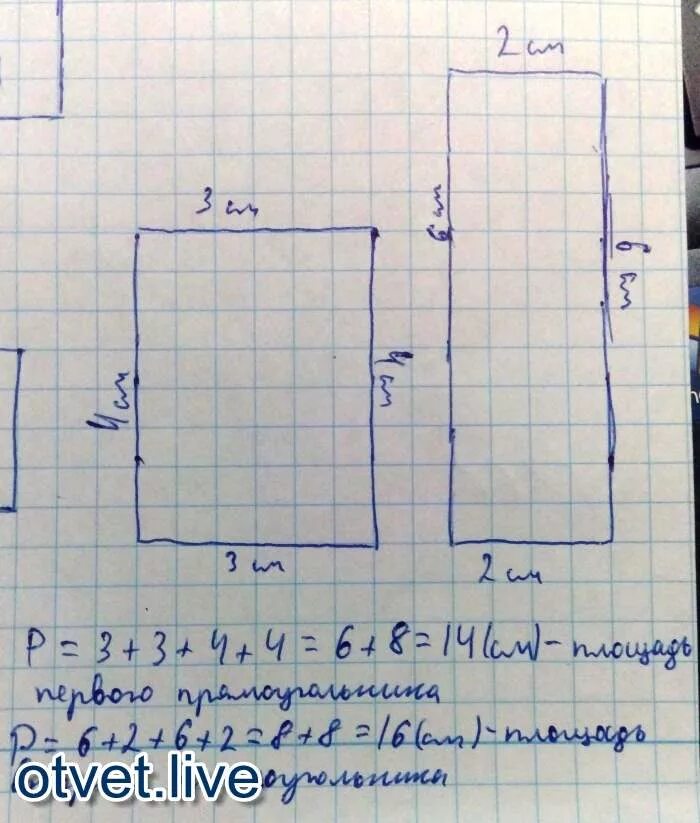 2 см
6 см
6 см
3 см
4 см
4 см
3 см
2 см
P = 3 + 3 + 4 + 4 = 6 + 8 = 14 (см) - площадь
первого прямоугольника
P = 6 + 2 + 6 + 2 = 8 + 8 = 16 (см) - площадь
otvet.live